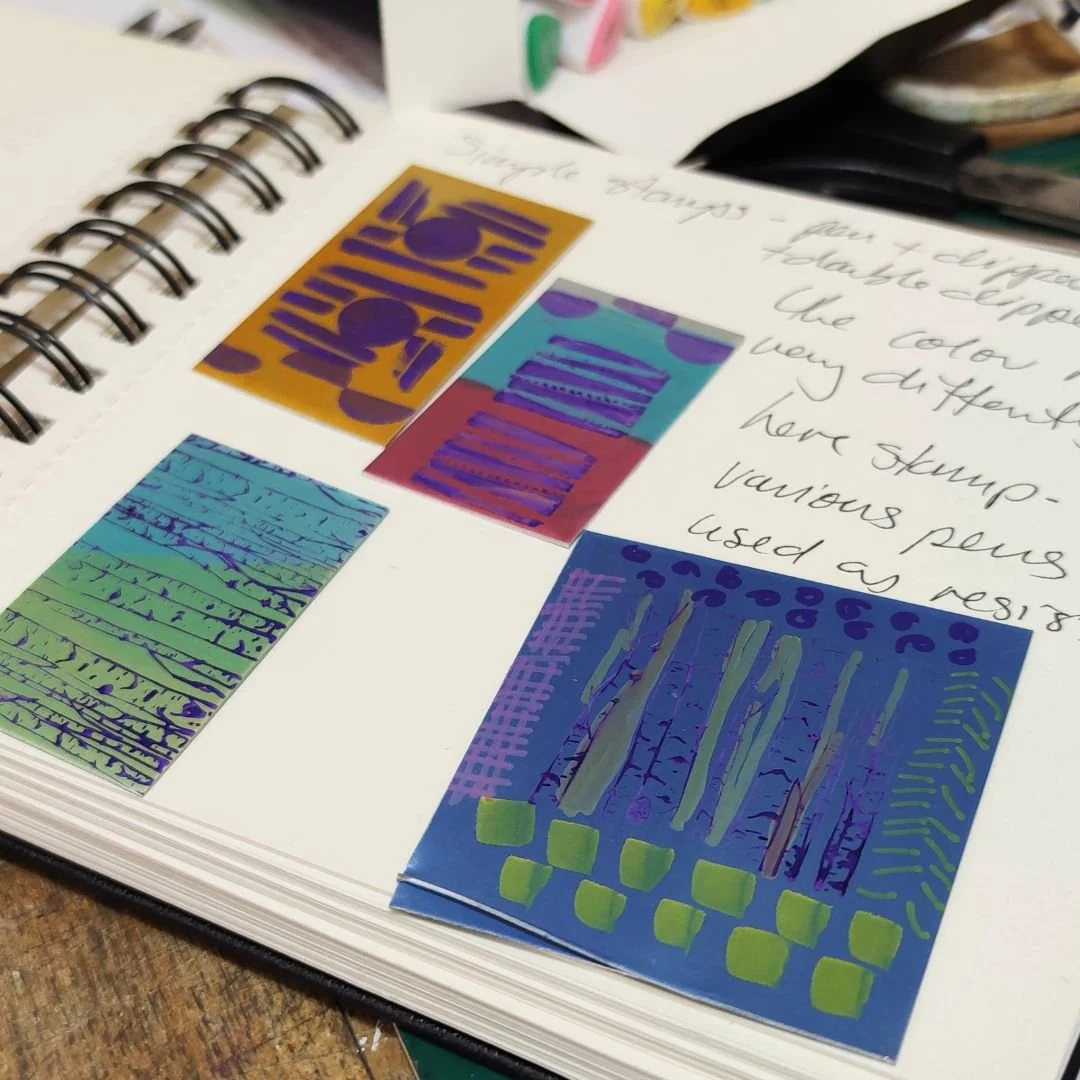 Simple stamps - pen + dipped
+ double dippe
the color
very different
here stamp-
various pens
used as resis